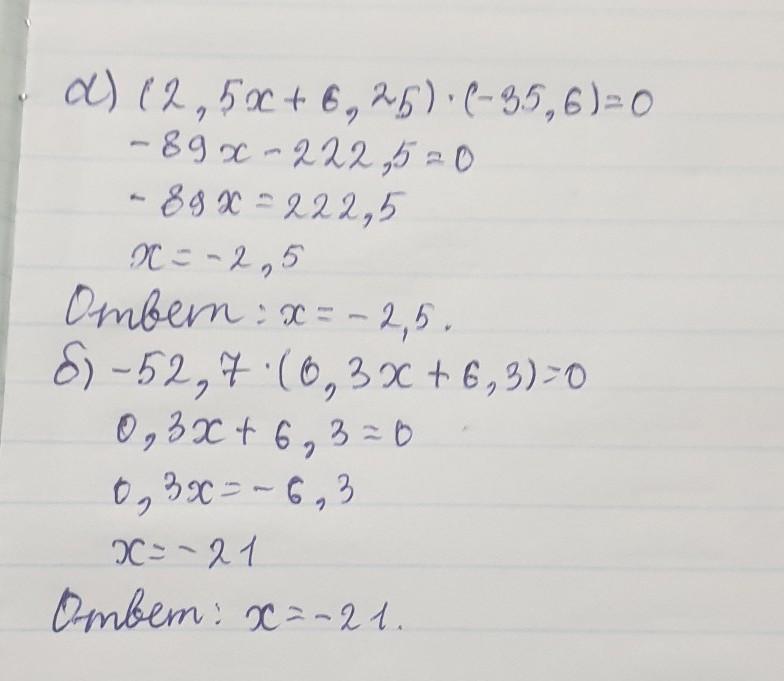 а) (2,5x+6,25)·(-35,6)=0
-89x-222,5=0
-89x=222,5
x=-2,5
Ответ: x=-2,5.
б) -52,7·(0,3x+6,3)=0
0,3x+6,3=0
0,3x=-6,3
x=-21
Ответ: x=-21.